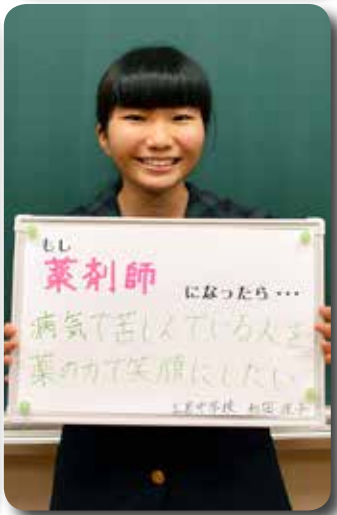 もし
薬剤師
になったら・・・
病気で苦しんでいる人を
薬の力で笑顔にしたい